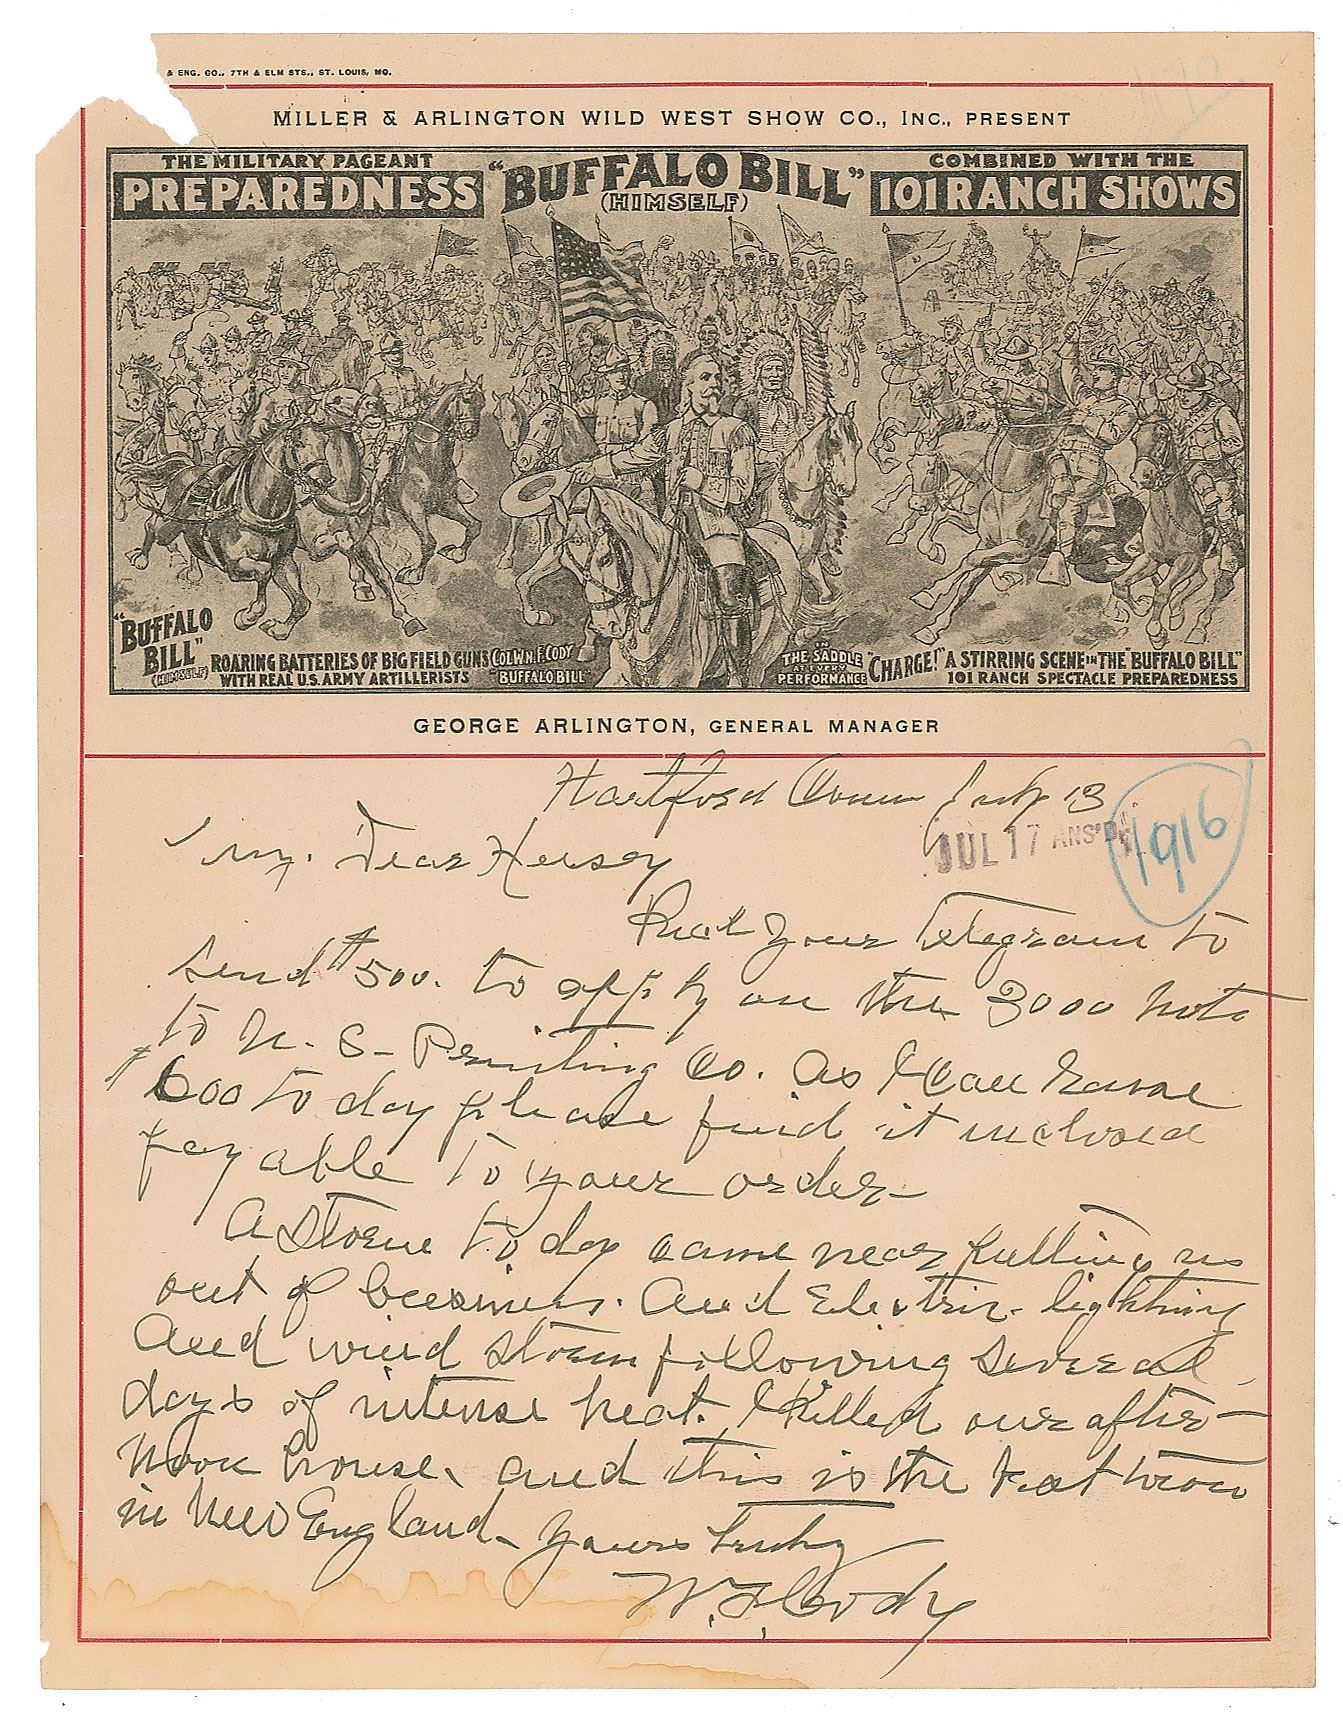 & ENG. CO., 7TH & ELM STS., ST. LOUIS, MO.
MILLER & ARLINGTON WILD WEST SHOW CO., INC., PRESENT
THE MILITARY PAGEANT
PREPAREDNESS
"BUFFALO BILL"
(HIMSELF)
COMBINED WITH THE
101 RANCH SHOWS
"BUFFALO
BILL"
(HIMSELF)
ROARING BATTERIES OF BIG FIELD GUNS
WITH REAL U.S. ARMY ARTILLERISTS
COL. WM. F. CODY
"BUFFALO BILL"
IN
THE SADDLE
AT EVERY
PERFORMANCE
"CHARGE!" A STIRRING SCENE IN THE "BUFFALO BILL"
101 RANCH SPECTACLE PREPAREDNESS
GEORGE ARLINGTON, GENERAL MANAGER
Hartford Conn July 13
JUL 17 ANS'D
1916
My. Dear Hersey
Recd your Telegram to
send $500. to apply on the 3000 Note
to U. S- Printing Co. As I can
$600 to day please find it inclosed
payable to your order-
A storm to day came near putting us
out of business. And Electric- lightning
And wind storm following several
days of intense heat. Killed our after-
noon house. and this is the
in New England- Yours truly
W. F. Cody